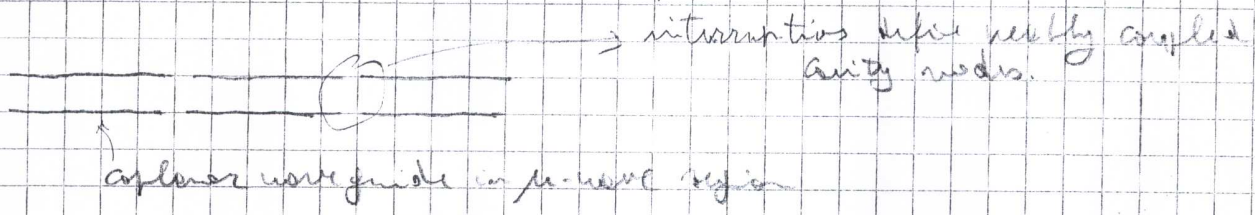 interruptions define weakly coupled
cavity modes.
coplanar waveguide in μ-wave region